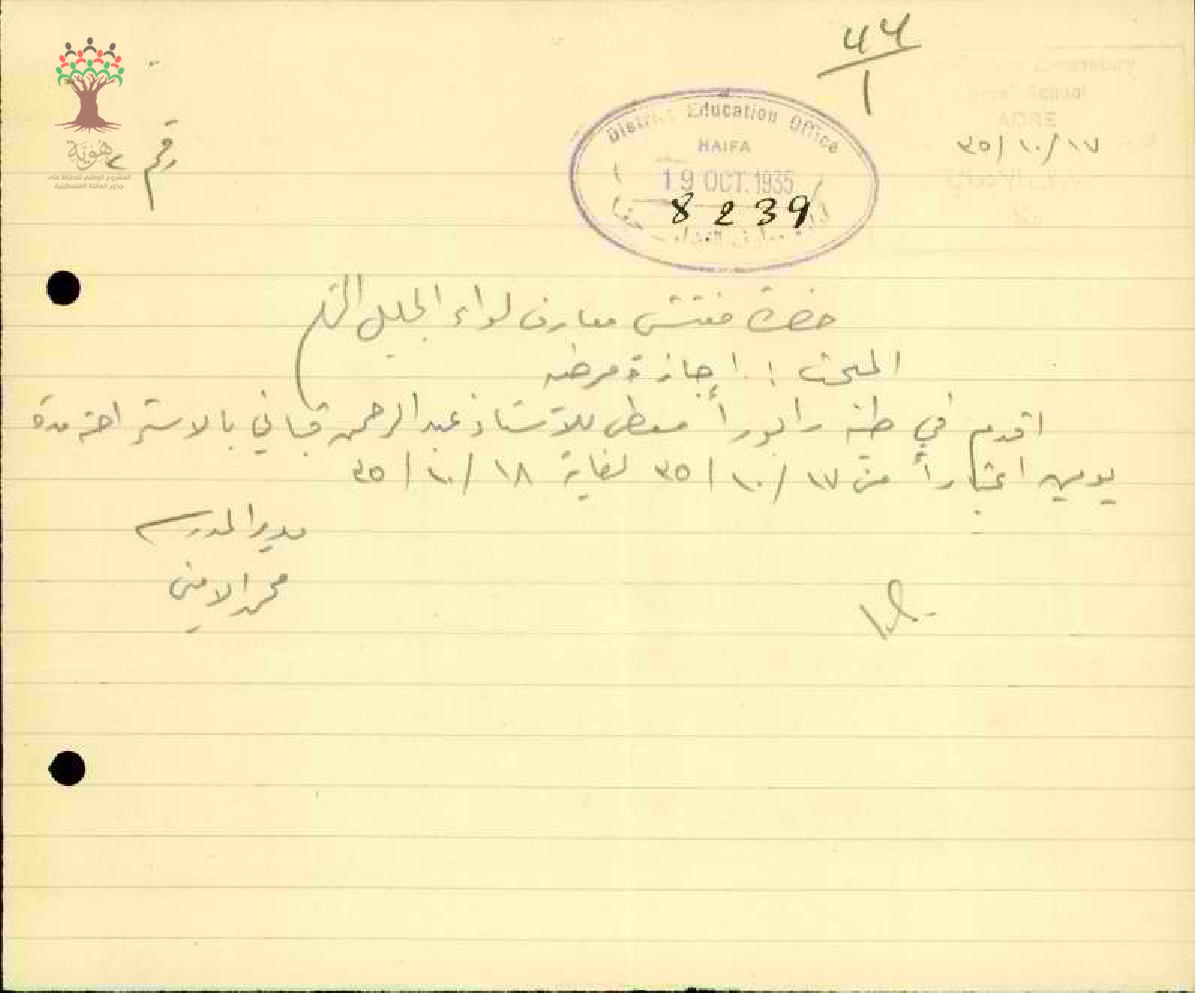 44
1
Elementary
Boys' School
ACRE
District Education Office
HAIFA
19 OCT. 1935
8239
٣٥/١٠/١٧
رقم ٢
هوية
المشروع الوطني للحفاظ على
جذور العائلة الفلسطينية
حضرة مفتش معارف لواء الجليل
المبحث : اجازة مرضيه
اقدم في طيه رابوراً معطى للاستاذ عبد الرحمن قباني بالاستراحة مدة
يومين اعتباراً من ٣٥/١٠/١٧ لغاية ٣٥/١٠/١٨
مدير المدرسه
محمد الامين